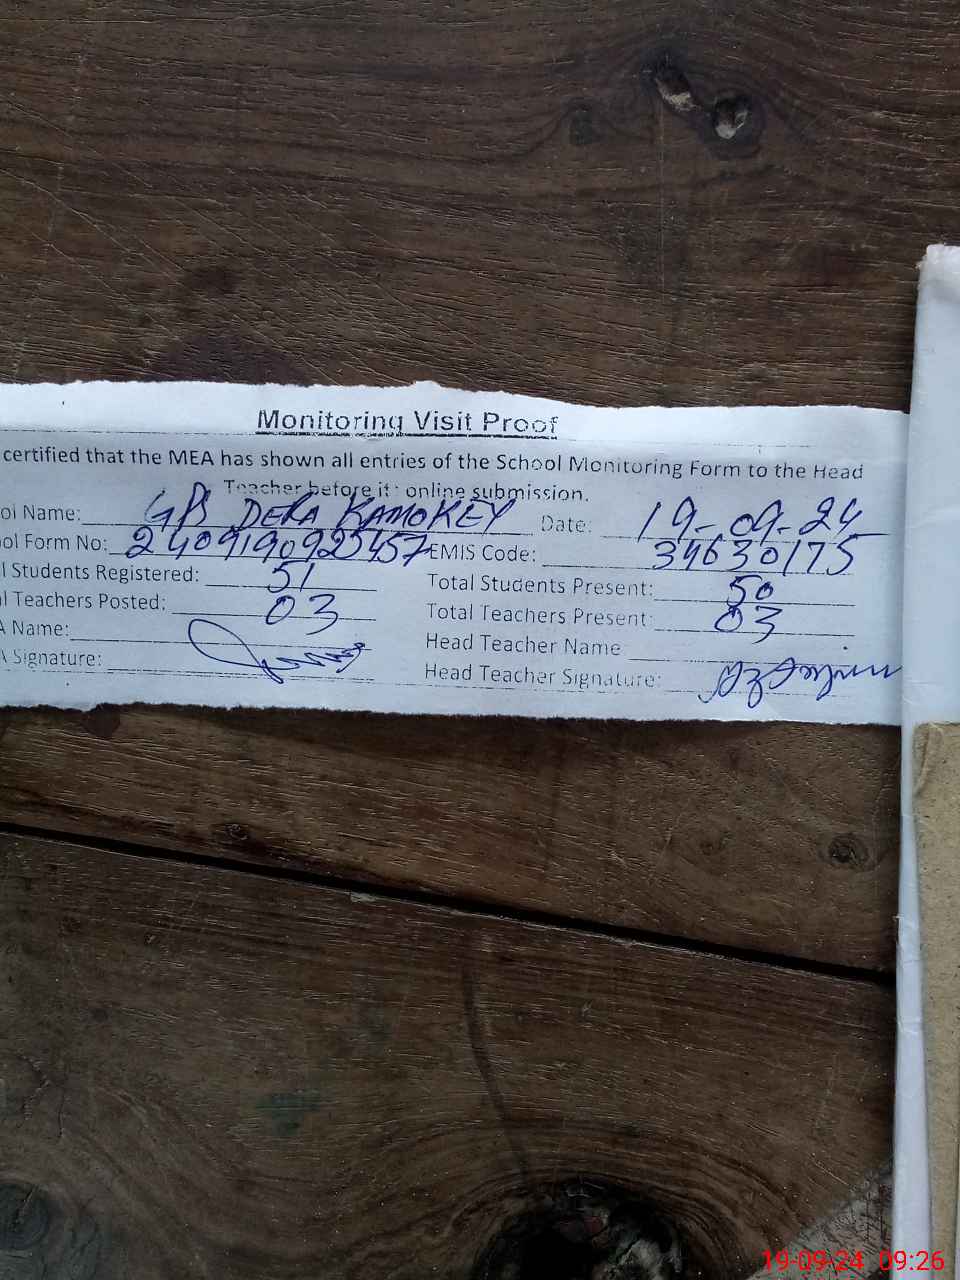 Monitoring Visit Proof
certified that the MEA has shown all entries of the School Monitoring Form to the Head
Teacher before it: online submission.
ol Name: GPS DERA KAMOKEY Date: 19-09-24
ol Form No: 2409190925457 EMIS Code: 34630175
l Students Registered: 51 Total Students Present: 50
l Teachers Posted: 03 Total Teachers Present: 03
A Name: Head Teacher Name
A Signature: Head Teacher Signature:
19-09-24 09:26